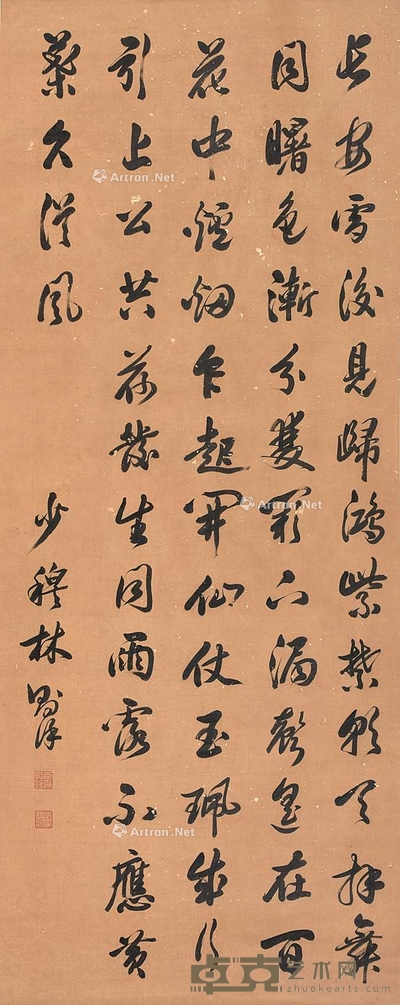 長安雪後見歸鴻紫禁朝天拜舞
同曙色漸分雙闕下漏聲遙在百
花中爐煙乍起開仙仗玉珮成行
引上公共荷發生同雨露不應黃
葉久從風
少穆林則徐
Artron.Net
Artron.Net
Artron.Net
卓克艺术网
zhuokearts.com